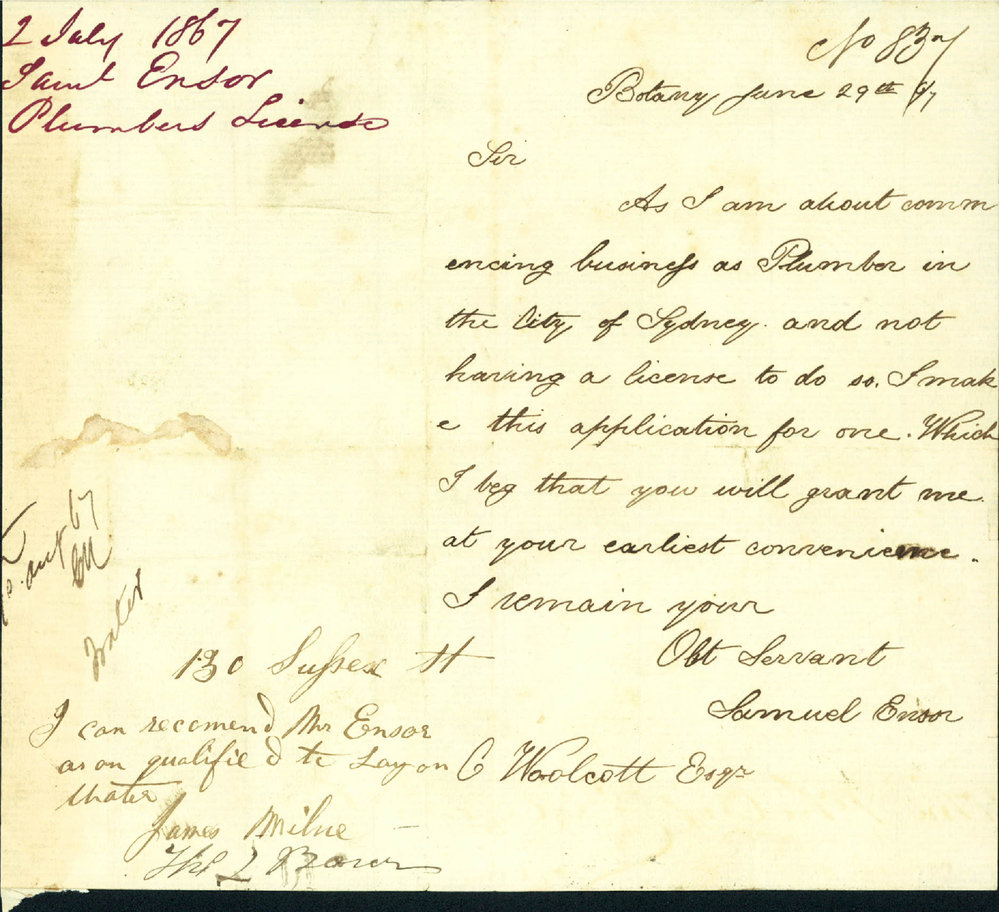 2 July 1867
Saml Ensor
Plumbers License
No 837
Botany June 29th /67
Sir
As I am about comm
encing business as Plumber in
the City of Sydney. and not
having a license to do so. I mak
e this application for one. Which
I beg that you will grant me.
at your earliest convenience.
I remain your
Obt Servant
Samuel Ensor
C Woolcott Esqr
67
Water
130 Sussex St
I can recomend Mr Ensor
as on qualified to Lay on
Water
James Milne